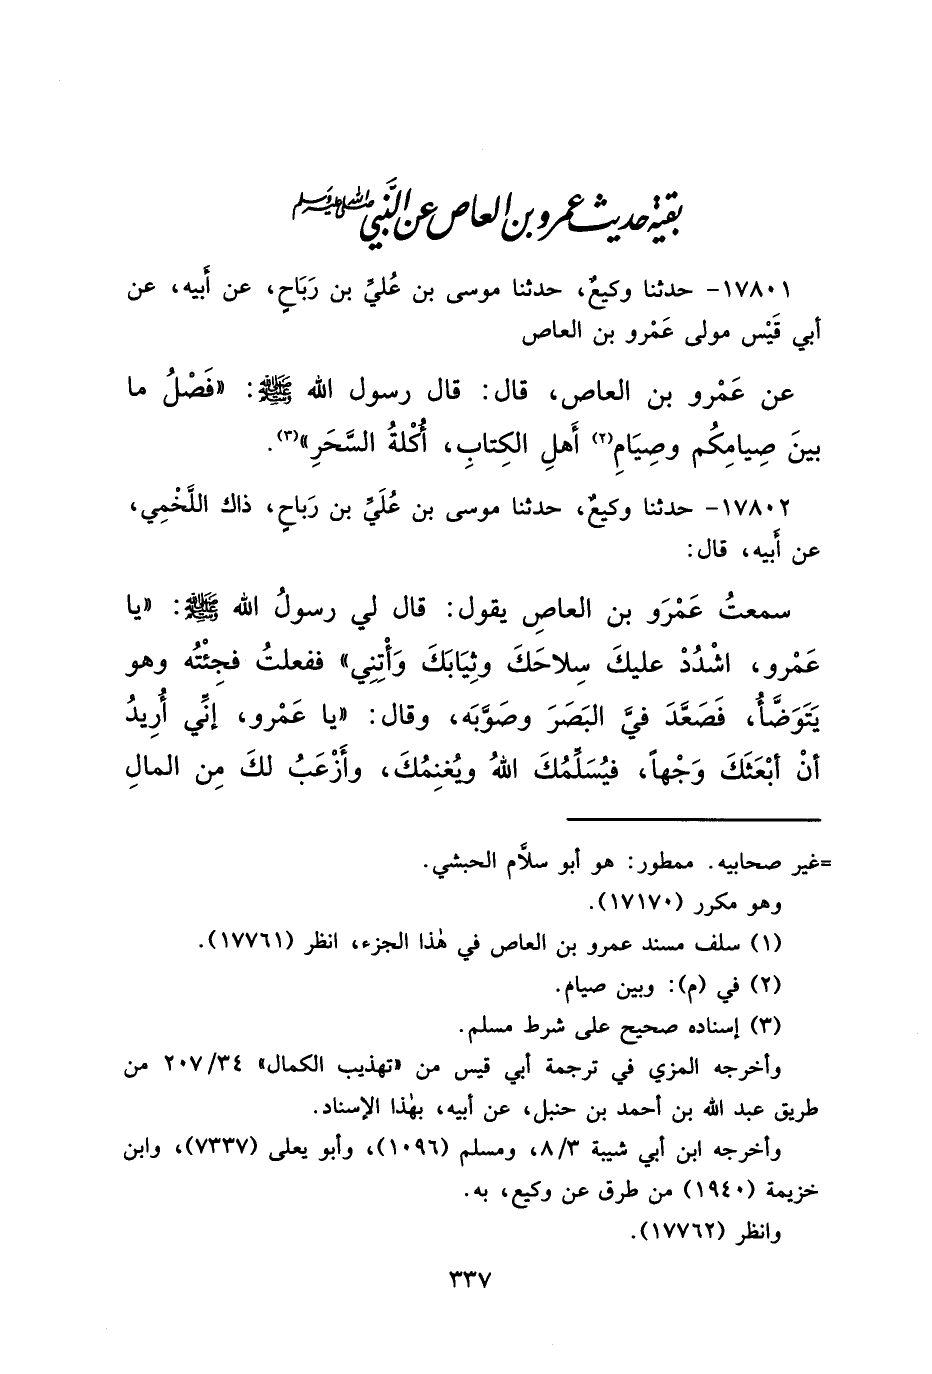 بقية حديث عمرو بن العاص عن النَّبي صلى الله عليه وسلم
١٧٨٠١- حدثنا وكيعٌ، حدثنا موسى بن عُليِّ بن رَبَاحٍ، عن أَبيه، عن
أبي قَيْس مولى عَمْرو بن العاص
عن عَمْرو بن العاص، قال: قال رسول الله ﷺ: «فَصْلُ ما
بينَ صِيامِكُم وصِيَامِ(٢) أَهلِ الكِتابِ، أُكْلةُ السَّحَرِ»(٣).
١٧٨٠٢- حدثنا وكيعٌ، حدثنا موسى بن عُلَيِّ بن رَباحٍ، ذاك اللَّخْمِي،
عن أَبيه، قال:
سمعتُ عَمْرَو بن العاصِ يقول: قال لي رسولُ الله ﷺ: «يا
عَمْرو، اشْدُدْ عليكَ سِلاحَكَ وثِيَابَكَ وَأْتِنِي» ففعلتُ فجِئْتُه وهو
يَتَوَضَّأُ، فَصَعَّدَ فيَّ البَصَرَ وصَوَّبَه، وقال: «يا عَمْرو، إنِّي أُرِيدُ
أنْ أبْعَثَكَ وَجْهاً، فيُسَلِّمُكَ اللهُ ويُغنِمُكَ، وأَزْعَبُ لكَ مِن المالِ
=غير صحابيه. ممطور: هو أبو سلاَّم الحبشي.
وهو مكرر (١٧١٧٠).
(١) سلف مسند عمرو بن العاص في هٰذا الجزء، انظر (١٧٧٦١).
(٢) في (م): وبين صيام.
(٣) إسناده صحيح على شرط مسلم.
وأخرجه المزي في ترجمة أبي قيس من «تهذيب الكمال» ٢٠٧/٣٤ من
طريق عبد الله بن أحمد بن حنبل، عن أبيه، بهٰذا الإسناد.
وأخرجه ابن أبي شيبة ٨/٣، ومسلم (١٠٩٦)، وأبو يعلى (٧٣٣٧)، وابن
خزيمة (١٩٤٠) من طرق عن وكيع، به.
وانظر (١٧٧٦٢).
٣٣٧